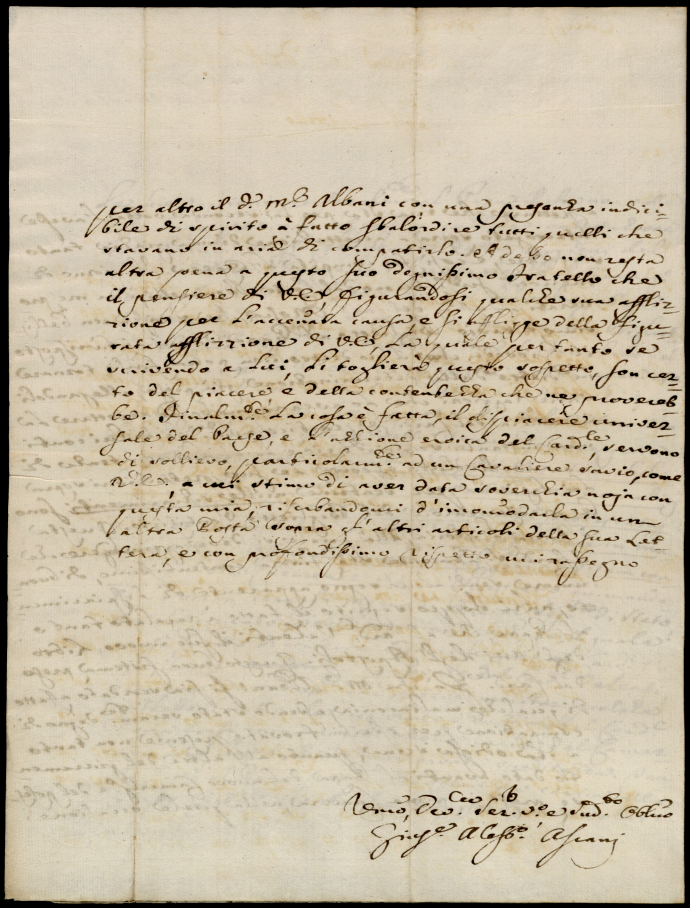 per altro il d.º Mr. Albani con una presenza indici-
bile di spirito à fatto sbalordire tutti quelli che
stavano in aria di compatirlo. non resta
altra pena a questo suo degnissimo fratello che
il pensiere di V.E. figurandosi qualche sua affliz-
zione per l'accennata causa, e si affligge della figu-
rata afflizzione di V.E. La quale per tanto se
scrivendo a Lui, Li toglierà questo sospetto, son cer-
to del piacere, e della contentezza che ne provereb-
be. Finalm.te La cosa è fatta, il dispiacere univer-
sale del Paese, e l'azzione eroica del Card.le, servono
di sollievo, particolarm.te ad un Cavaliere savio, come
V.E., a cui stimo di aver data soverchia noja con
questa mia, riserbandomi d'incomodarla in un
altra Posta sopra gl'altri articoli della sua Let-
tera, e con profondissimo rispetto mi rassegno
Umo, Ser. e Obbmo
Gius.e Aless.º Ascani